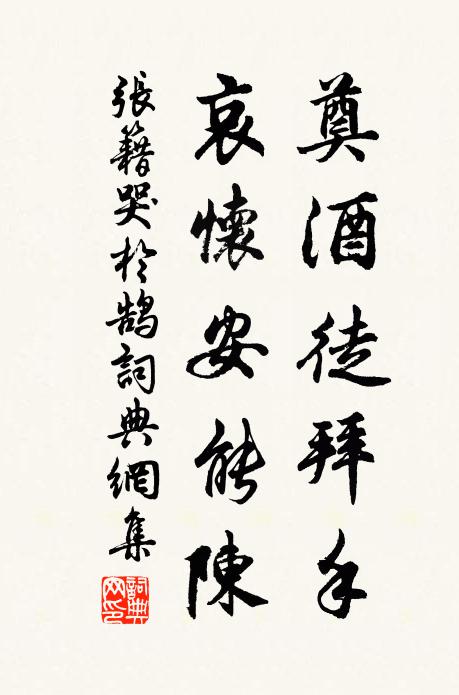 奠酒徒拜手
哀懷安能陳
張籍哭於鵠詞典網集
詞典網印